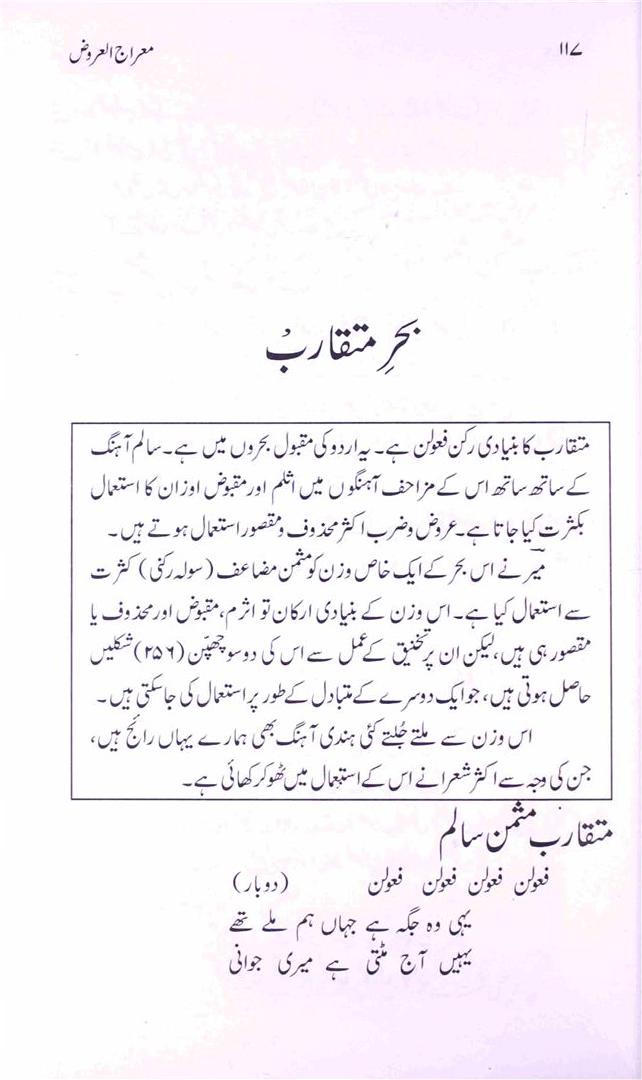 ۱۱۷ معراج العروض
بحرِ متقارب
متقارب کا بنیادی رکن فعولن ہے۔ یہ اردو کی مقبول بحروں میں ہے۔ سالم آہنگ
کے ساتھ ساتھ اس کے مزاحف آہنگوں میں اثلم اور مقبوض اوزان کا استعمال
بکثرت کیا جاتا ہے۔ عروض و ضرب اکثر محذوف و مقصور استعمال ہوتے ہیں۔
میرؔ نے اس بحر کے ایک خاص وزن کو مثمن مضاعف (سولہ رکنی) کثرت
سے استعمال کیا ہے۔ اس وزن کے بنیادی ارکان تو اثرم، مقبوض اور محذوف یا
مقصور ہی ہیں، لیکن ان پر تخنیق کے عمل سے اس کی دو سو چھپّن (۲۵۶) شکلیں
حاصل ہوتی ہیں، جو ایک دوسرے کے متبادل کے طور پر استعمال کی جاسکتی ہیں۔
اس وزن سے ملتے جُلتے کئی ہندی آہنگ بھی ہمارے یہاں رائج ہیں،
جن کی وجہ سے اکثر شعرا نے اس کے استعمال میں ٹھوکر کھائی ہے۔
متقارب مثمن سالم
فعولن فعولن فعولن فعولن (دوبار)
یہی وہ جگہ ہے جہاں ہم ملے تھے
یہیں آج مٹتی ہے میری جوانی